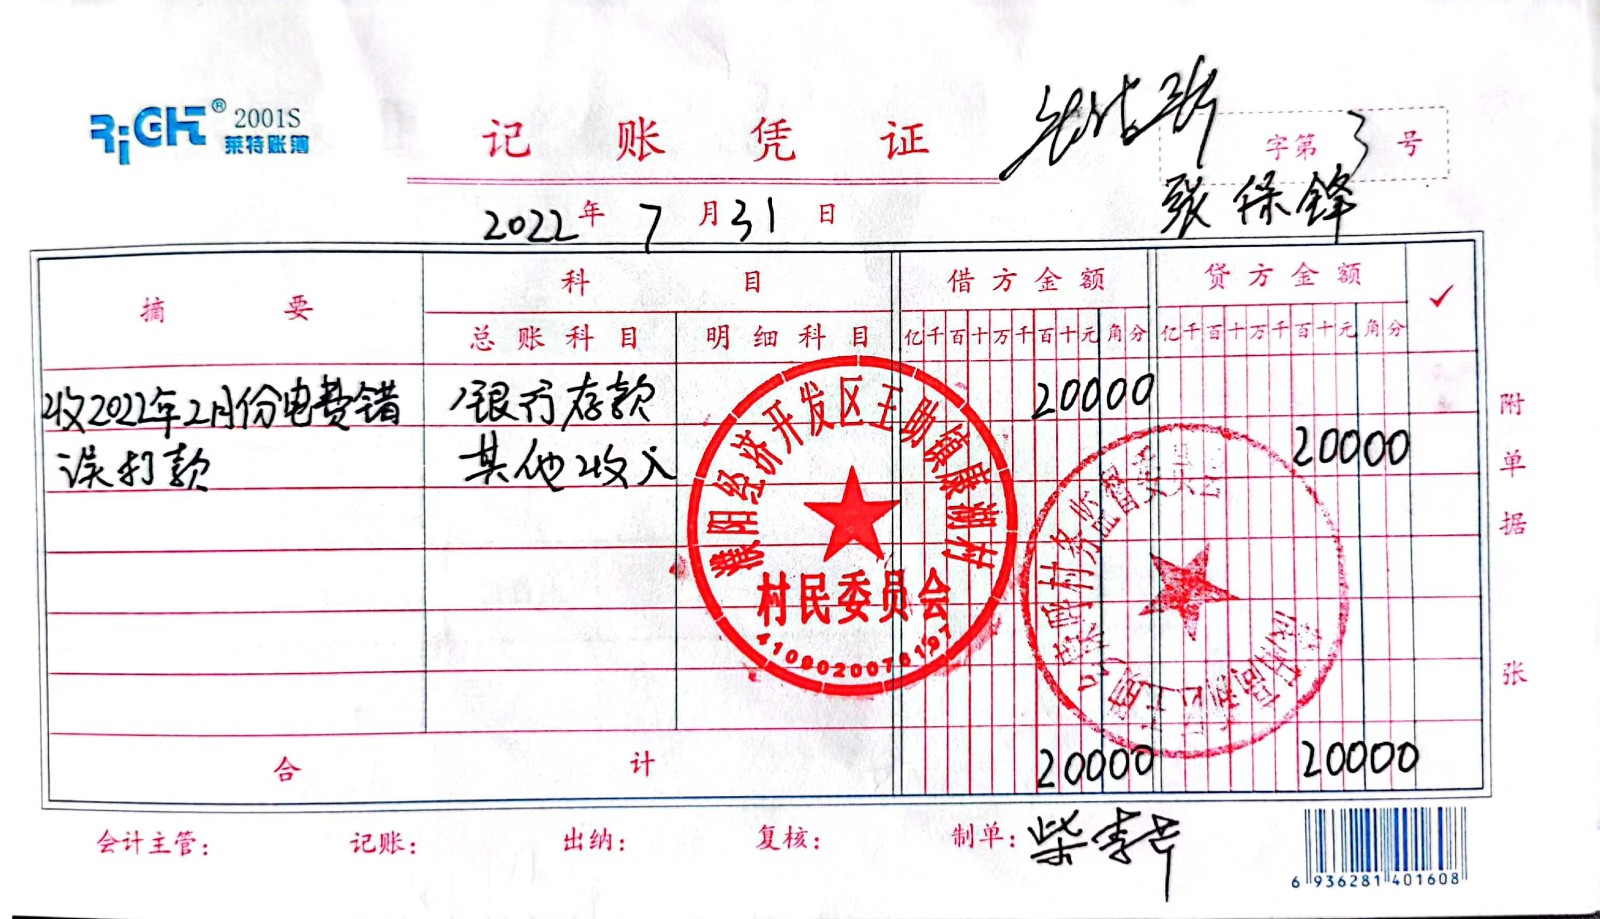 RiGHT® 2001S
莱特账簿
记账凭证
字第 3 号
张保锋
2022年 7月31日
摘要 科目 借方金额 贷方金额 ✓
总账科目 明细科目 亿千百十万千百十元角分 亿千百十万千百十元角分
收2022年2月份电费错 银行存款 20000
误打款 其他收入 20000
濮阳经济开发区王助镇康呼村
村民委员会
4109020076197
康呼村村务监督委员会
合计 20000 20000
附单据 张
会计主管: 记账: 出纳: 复核: 制单:
6 936281 401608